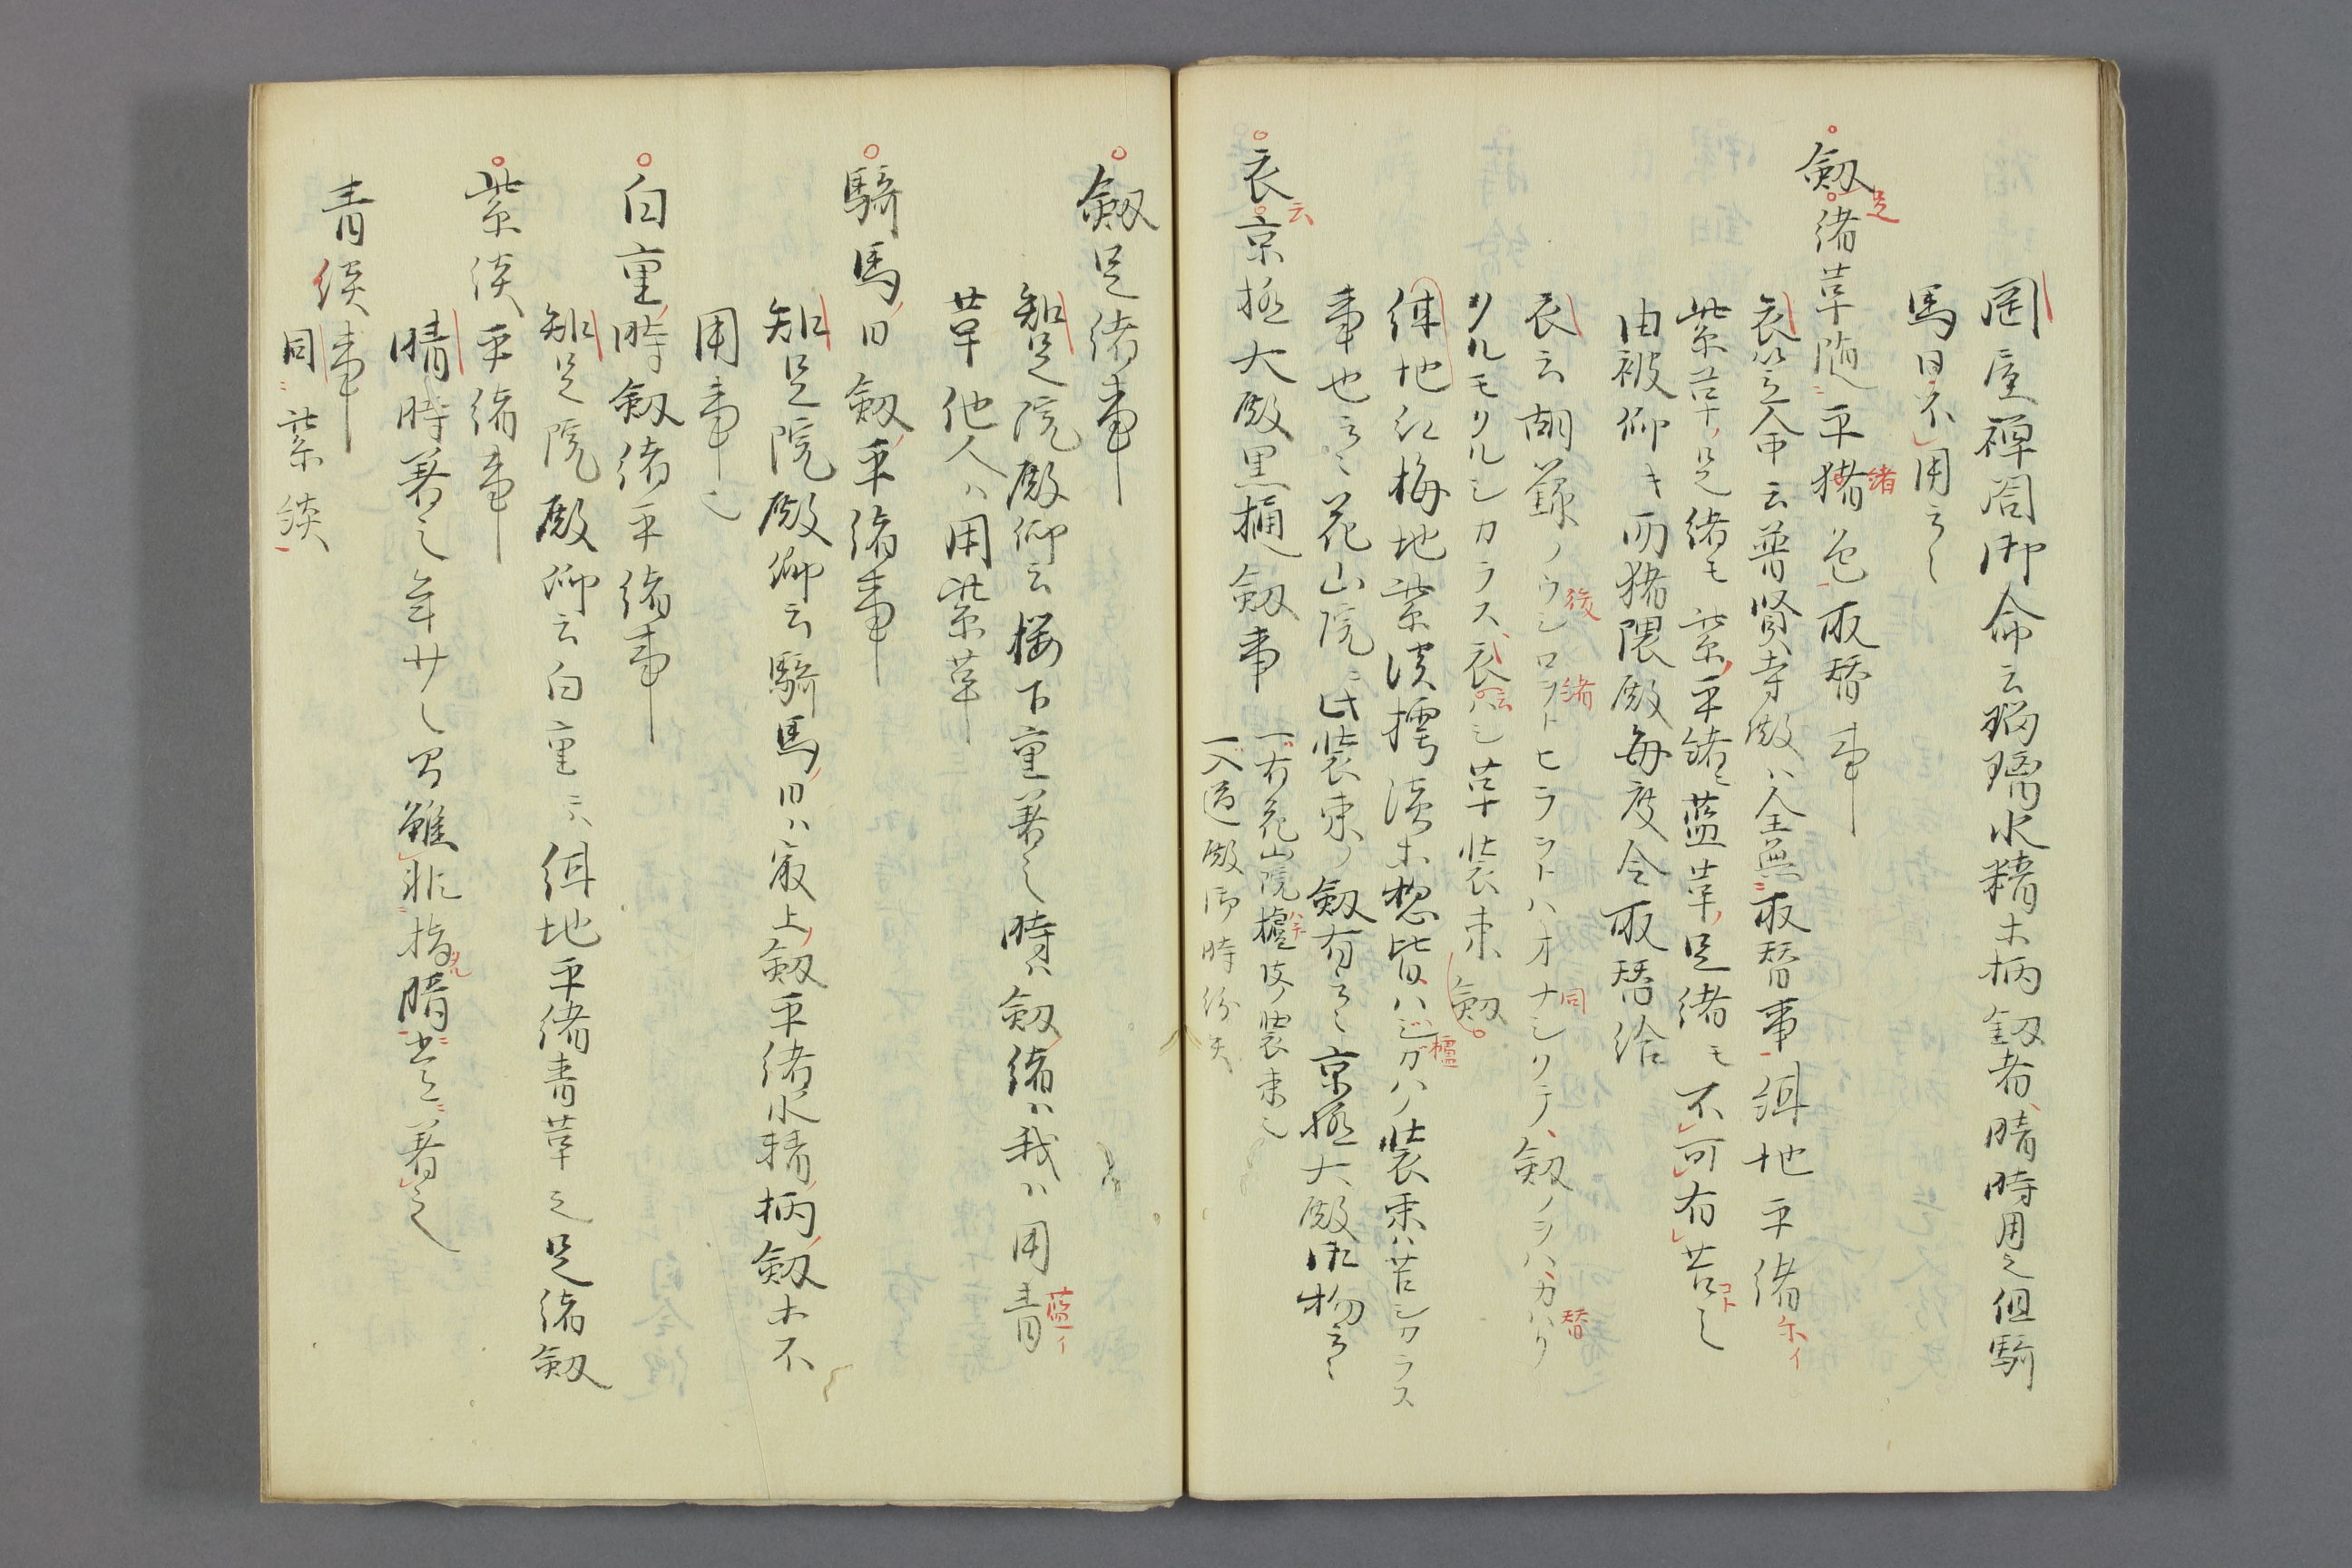 罡屋禅閤御命云瑠璃水精木柄釼者晴時用之但騎
馬日不用云々
釼緒革随平猪色取替事
衣笠入命云普賢寺殿ハ全無取替事紺地平緒
紫革足緒モ紫平緒ニ藍革足緒モ不可有苦之
由被仰キ而猪隈殿毎度令取替給
衣云胡籙ノウシロヲトヒラヲトハオナシクテ釼ノヲハカハリ
タルモクルシカラス衣ハシ革装束釼
紺地紅梅地紫淡樗濃木惣皆ハシカハノ装束ハ苦シカラス
事也云々花山院ニ此装束ノ釼有云々京極大殿御物云々
衣京極大殿黒樋釼事
一有花山院櫨皮ノ装束之
一入道殿御時紛失
釼足緒事
知足院殿仰云桜下重着之時ハ釼緒ハ我ハ用青
革他人ハ用紫革
騎馬日釼平緒事
知足院殿仰云騎馬日ハ最上釼平緒水精柄釼木不
用事也
白重時釼緒平緒事
知足院殿仰云白重ニハ紺地平緒青革之足緒釼
紫緂平緒事
晴時着之年廿之間雖非指晴出之着之
青緂事
同紫緂